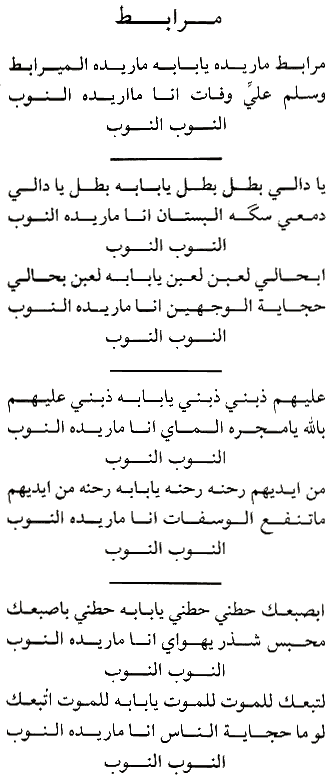 مرابط
مرابط ماريده يابابه ماريده الميرابط
وسلم عليِّ وفات انا مااريده النوب
النوب النوب
يا دالي بطل بطل يابابه بطل يا دالي
دمعي سگه البستان انا ماريده النوب
النوب النوب
ابحالي لعبن لعبن يابابه لعبن بحالي
حجاية الوجهين انا ماريده النوب
النوب النوب
عليهم ذبني ذبني يابابه ذبني عليهم
بالله يامجره الماي انا ماريده النوب
النوب النوب
من ايديهم رحنه رحنه يابابه رحنه من ايديهم
ماتنفع الوسفات انا ماريده النوب
النوب النوب
ابصبعك حطني حطني يابابه حطني باصبعك
محبس شذر يهواي انا ماريده النوب
النوب النوب
لتبعك للموت للموت يابابه للموت اتْبعك
لو ما حجاية الناس انا ماريده النوب
النوب النوب